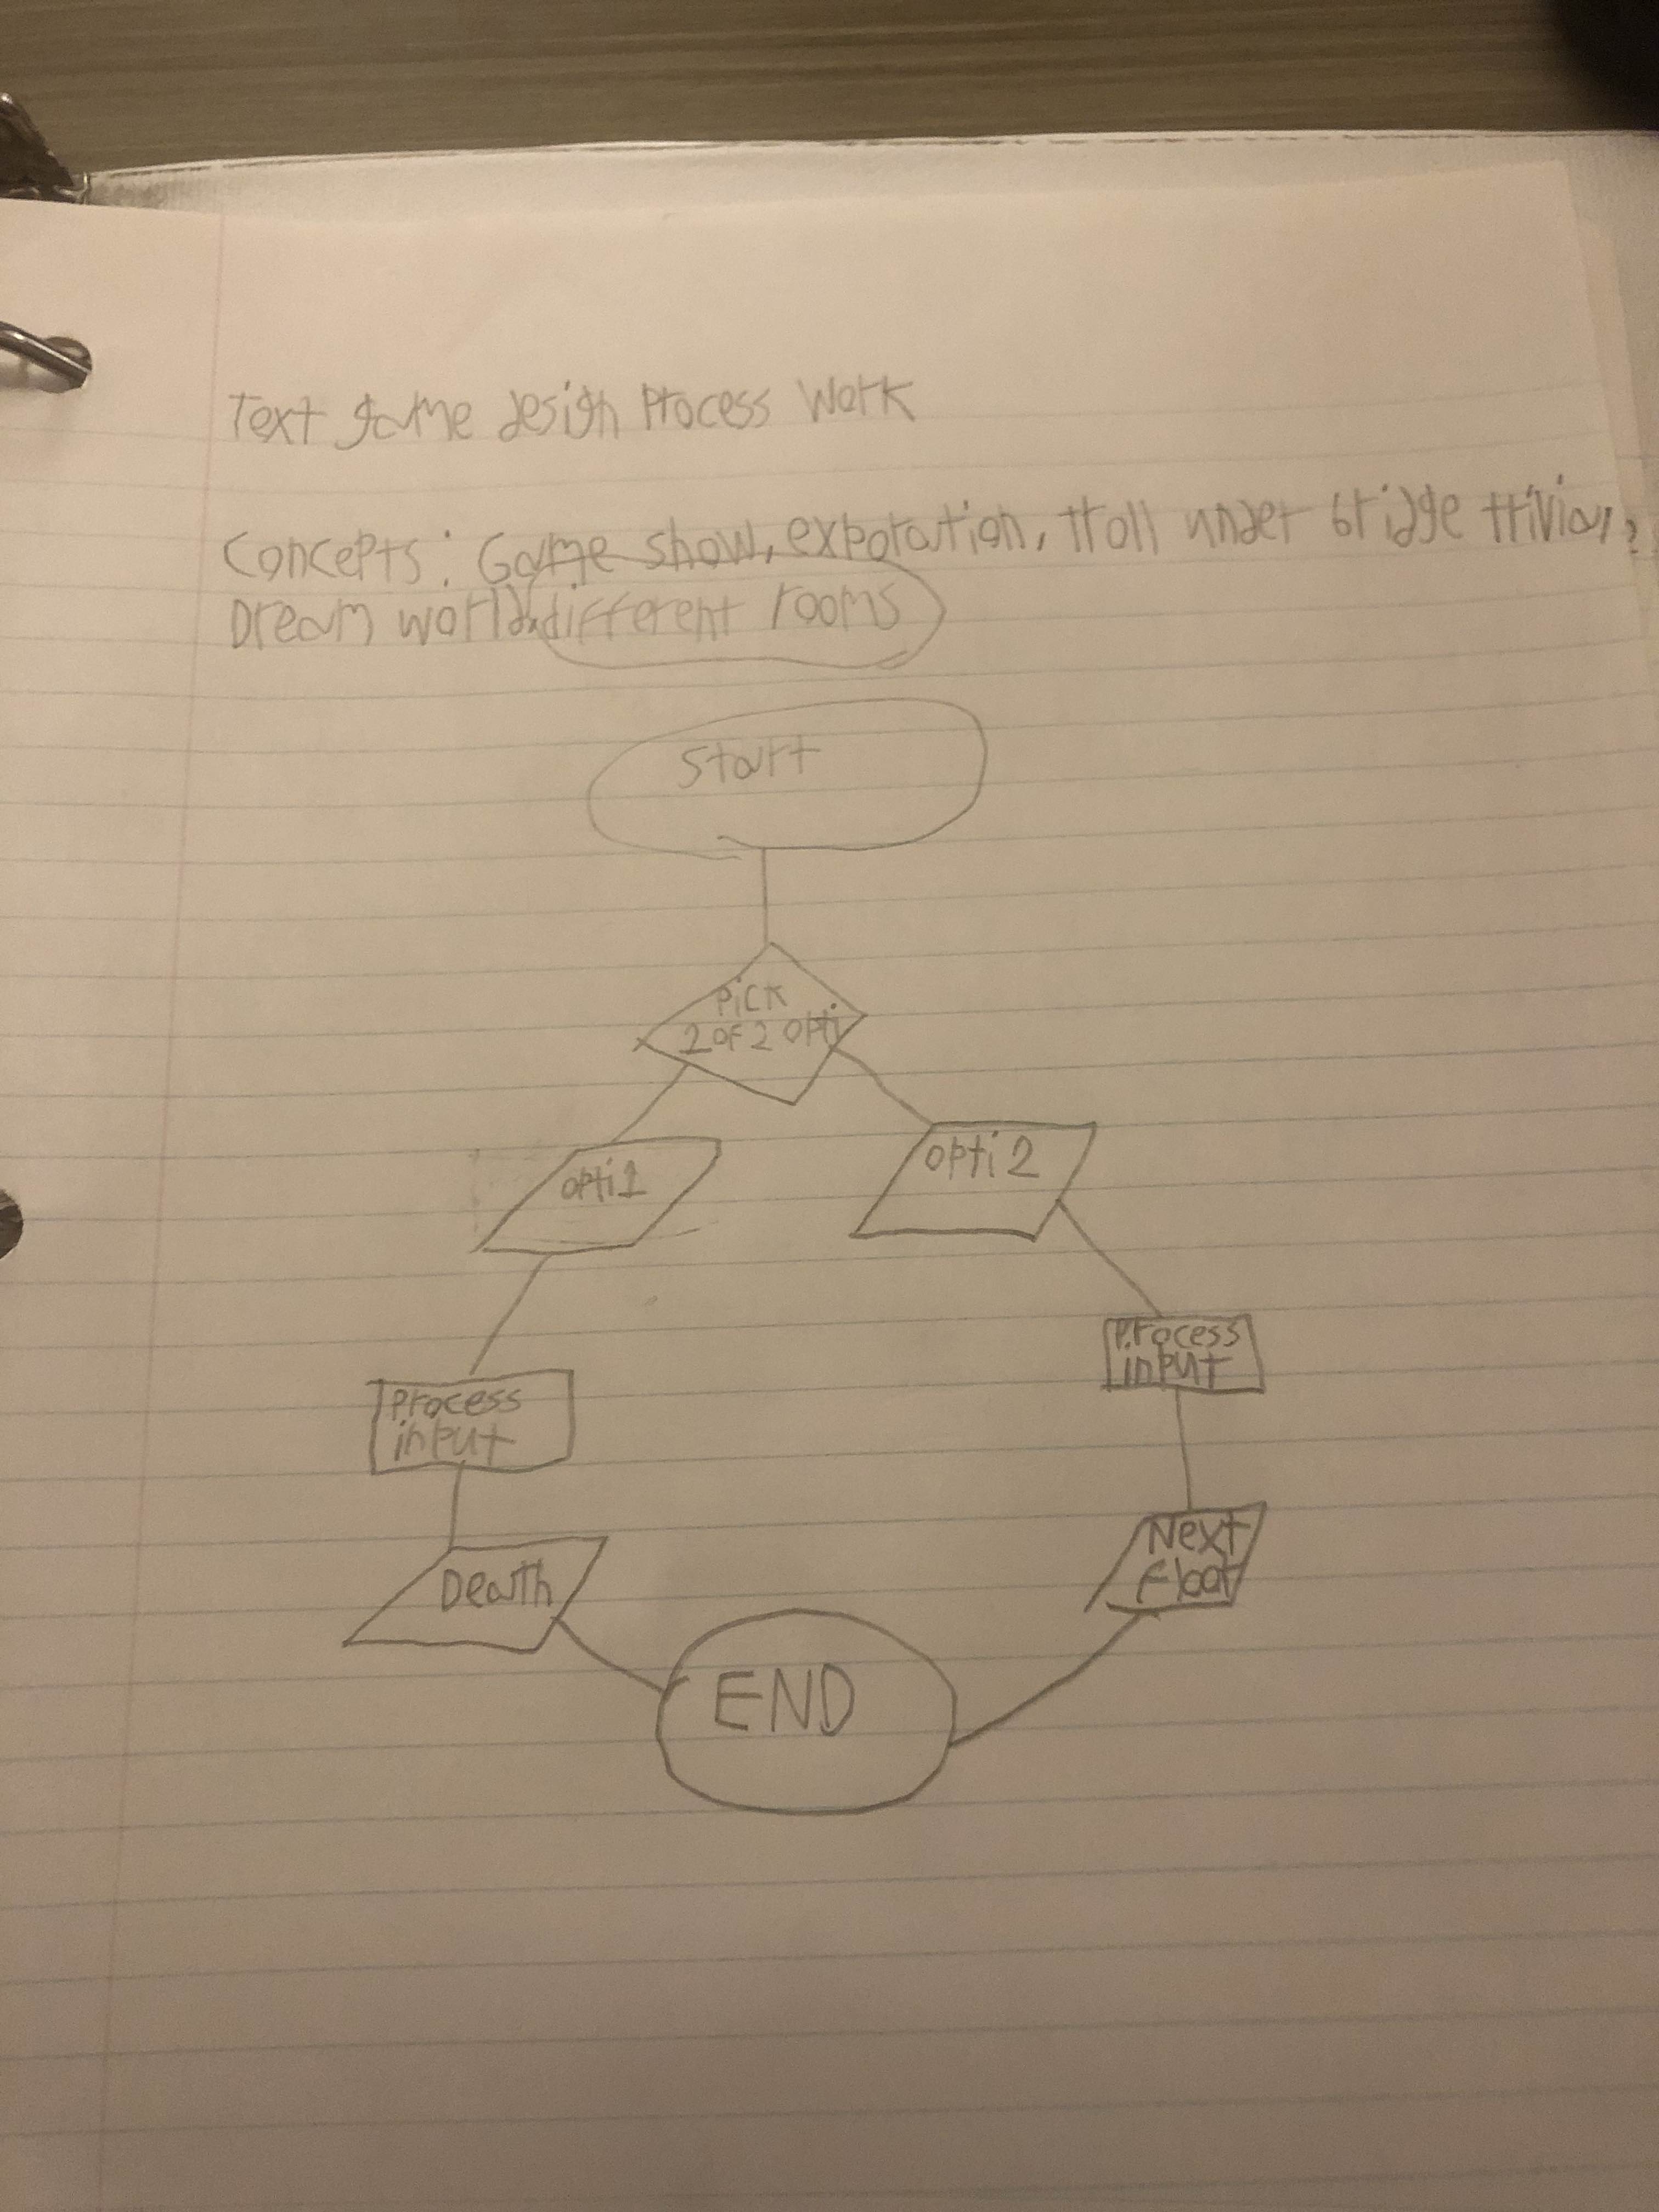 Text game design Process Work
Concepts: Game show, exporation, troll under bridge trivia,
Dream world, different rooms
Start
Pick
1 of 2 opti
opti1
opti2
Process
input
Process
input
Death
Next
floor
END